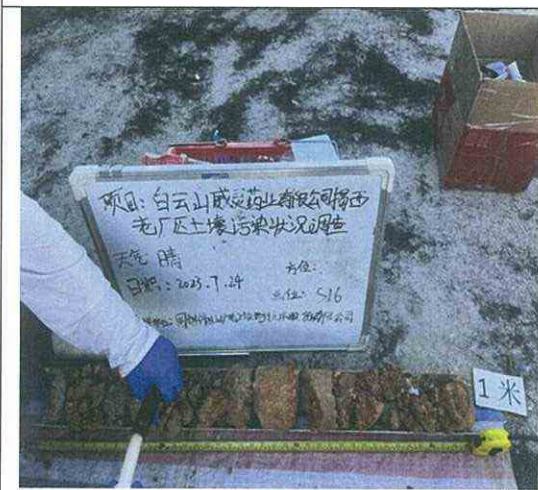 项目：白云山威灵药业有限公司揭西
老厂区土壤污染状况调查
天气 晴
方位：
日期：2023.7.24
点位：S16
公司
1米